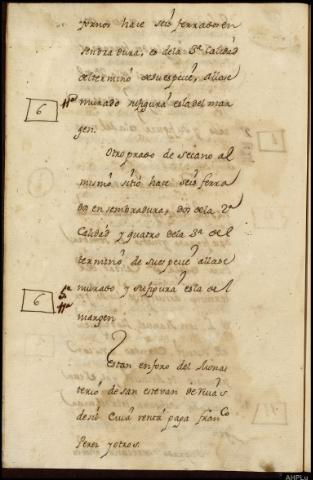 fornos hace seis ferrados en
sendradura, es de la 3ª Calidad
del termino de su especie, allase
6 murado su figura es la del mar
gen.
Otro prado de secano al
mismo sitio hace seis ferra
dos en sembradura, dos de la 2ª
Calidad y quatro de la 3ª del
termino de su especie allase
6 murado y su figura es la del
margen
Estan en foro del Monas
terio de san estevan de
renta paga franco
Perez y otros.
AHPLu